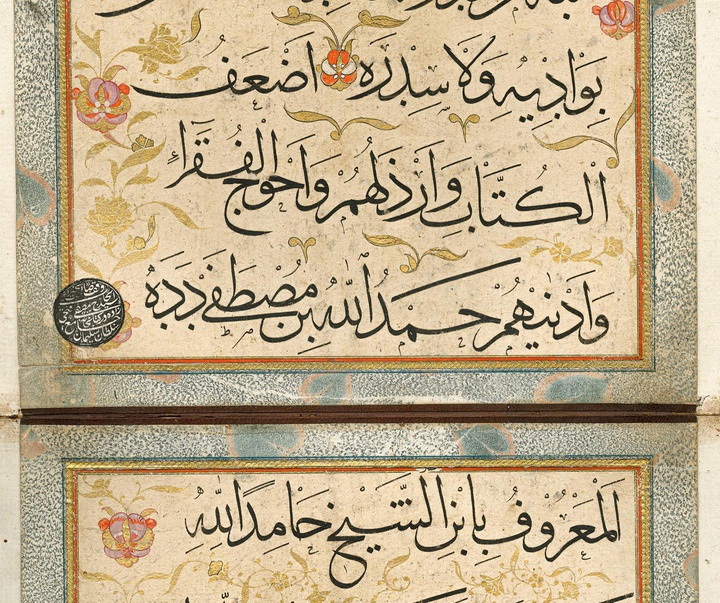 بَوَادِيهِ وَلَا سِدْرَهُ اَضْعَفُ
الْكُتَّابِ وَاَرْذَلُهُمْ وَاَحْوَجُ الْفُقَرَاءِ
وَاَدْنٰيهُمْ حَمْدُ اللّٰهِ بْنِ مُصْطَفٰى دَدَهْ
اَلْمَعْرُوفُ بِابْنِ الشَّيْخِ حَامِدًا لِلّٰهِ